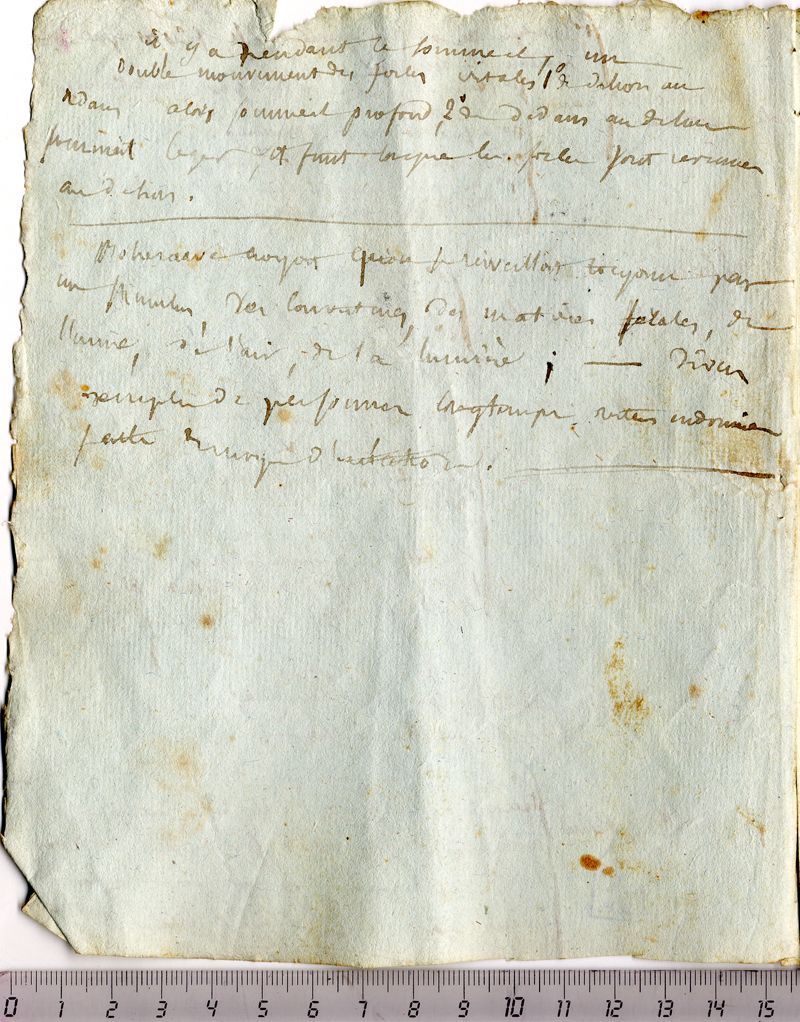 il y a pendant le sommeil, un
double mouvement des forces vitales 1° de dehors au
dedans alors sommeil profond, 2° du dedans au dehors
sommeil leger et finit lorsque les forces sont revenues
au dehors.
croyoit qu'on se reveilloit toujours par
un stimulus, des couvertures, des matières fecales, de
l'urine, de l'air, de la lumière ; —
exemples de personnes longtemps restées endormies
faute
0 1 2 3 4 5 6 7 8 9 10 11 12 13 14 15